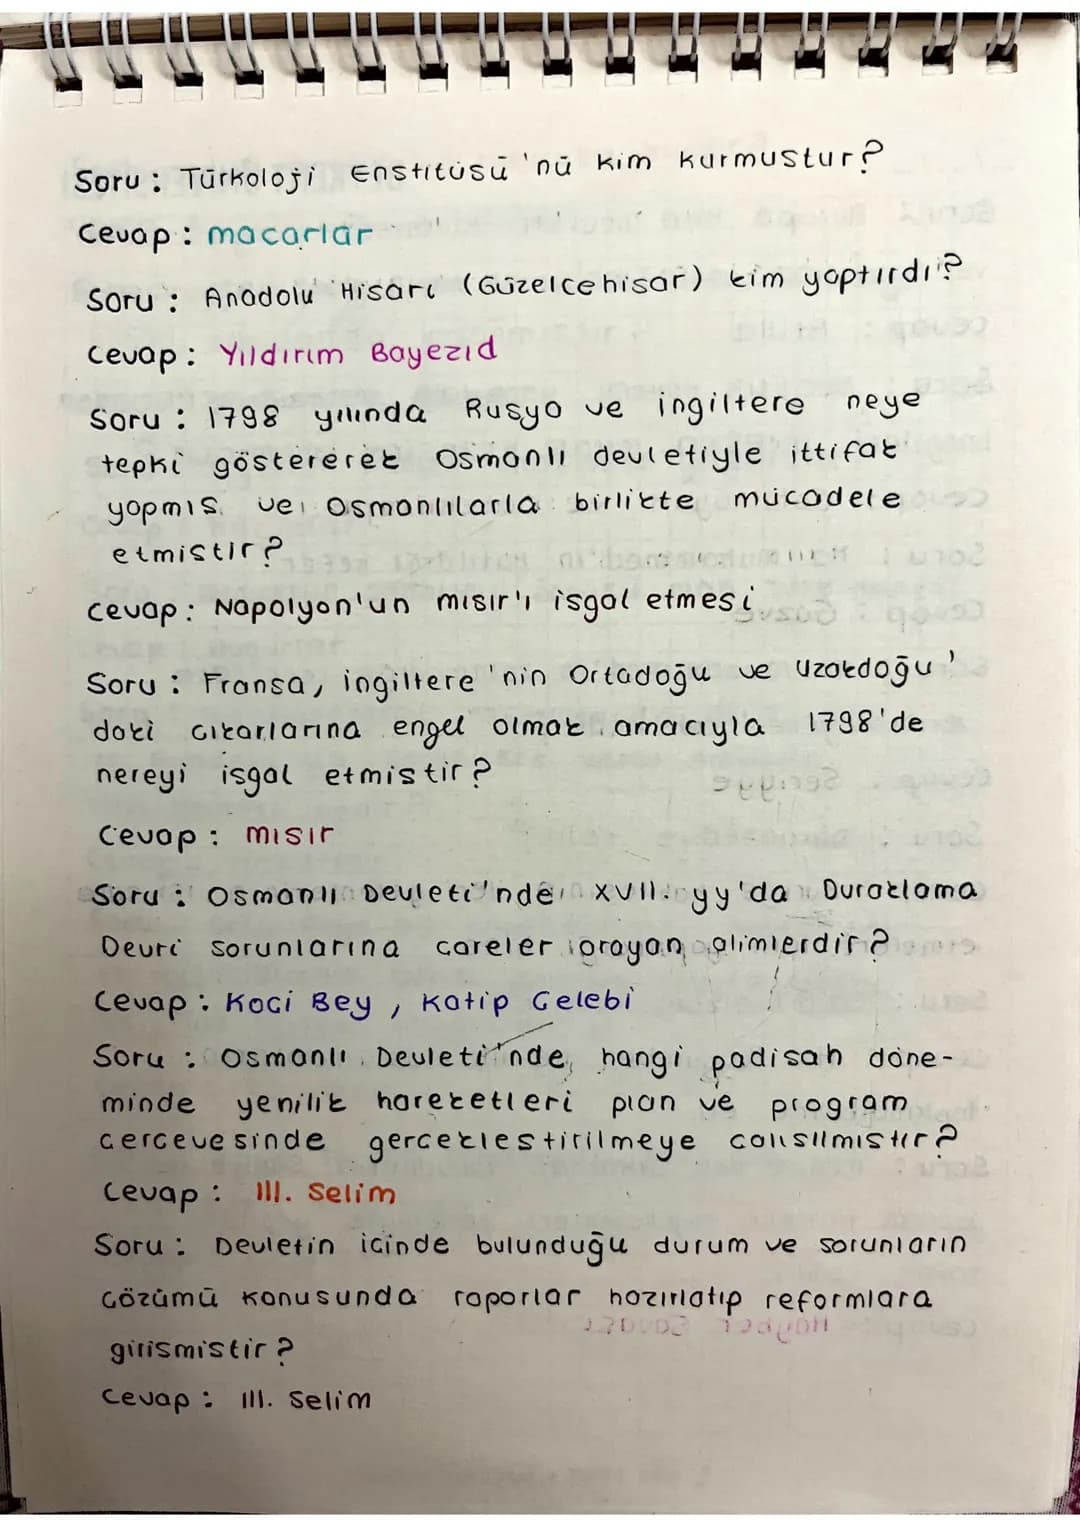 Soru : Türkoloji Enstitüsü'nü kim kurmustur?
Cevap : macarlar
Soru : Anadolu Hisarı (Güzelcehisar) kim yaptırdı?
Cevap : Yıldırım Bayezıd
Soru : 1798 yılında Rusya ve ingiltere neye
tepki göstererek Osmanlı devletiyle ittifak
yapmıs ve Osmanlılarla birlikte mücadele
etmistir?
Cevap : Napolyon'un mısır'ı isgal etmesi
Soru : Fransa, ingiltere'nin Ortadoğu ve Uzakdoğu'
daki cıkarlarına engel olmak amacıyla 1798'de
nereyi isgal etmistir?
Cevap : mısır
Soru : Osmanlı Devleti'nde XVII. yy'da Duraklama
Devri sorunlarına careler arayan alimlerdir?
Cevap : Koci Bey, Katip Celebi
Soru : Osmanlı Devleti'nde, hangi padisah döne-
minde yenilik hareketleri plan ve program
cercevesinde gerceklestirilmeye calısılmıstır?
Cevap : III. Selim
Soru : Devletin icinde bulunduğu durum ve sorunların
cözümü konusunda raporlar hazırlatıp reformlara
girismistir?
Cevap : III. Selim